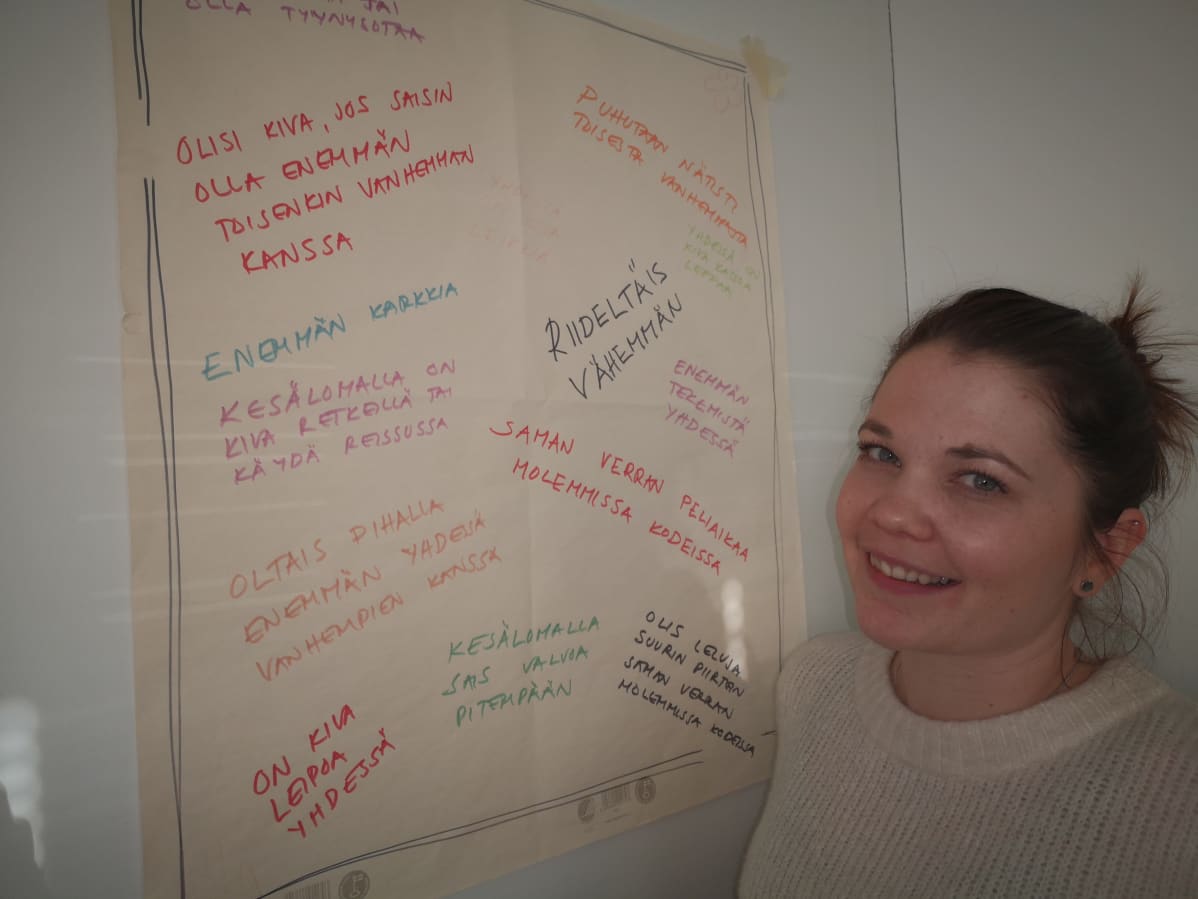 TAI
OLLA TYYNYSOTAA
OLISI KIVA, JOS SAISIN
OLLA ENEMMÄN
TOISENKIN VANHEMMAN
KANSSA
ENEMMÄN KARKKIA
KESÄLOMALLA ON
KIVA RETKEILLÄ TAI
KÄYDÄ REISSUSSA
OLTAIS PIHALLA
ENEMMÄN YHDESSÄ
VANHEMPIEN KANSSA
ON KIVA
LEIPOA
YHDESSÄ
PUHUTAAN NÄTISTI
TOISESTA VANHEMMASTA
YHDESSÄ ON
KIVA
RIIDELTÄIS
VÄHEMMÄN
ENEMMÄN
TEKEMISTÄ
YHDESSÄ
SAMAN VERRAN PELIAIKAA
MOLEMMISSA KODEISSA
KESÄLOMALLA
SAIS VALVOA
PITEMPÄÄN
OLIS LELUJA
SUURIN PIIRTEIN
SAMAN VERRAN
MOLEMMISSA KODEISSA